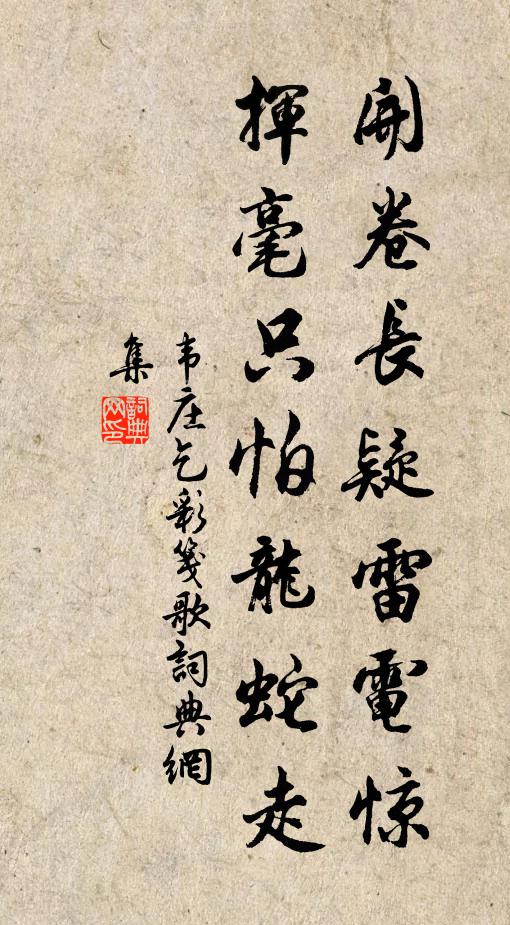 開卷長疑雷電惊
揮毫只怕龍蛇走
韦庄乞彩箋歌詞典網
集
詞典網印